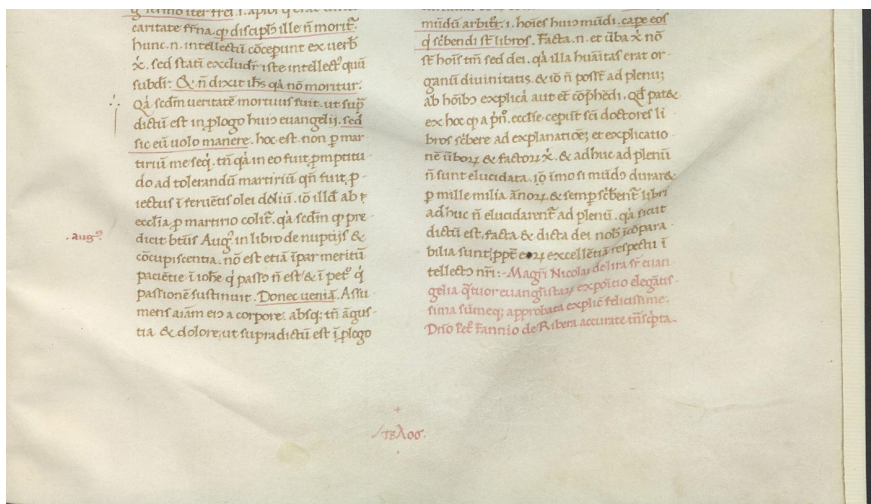 caritate fr̄na. qp discipl's ille n̄ morit᷑.
hunc .n. intellectū cōceperunt ex verb̄
x̄. sed statī excludīt iste intellect' quū
subdit: & n̄ dixit ih̄s qà nō moritur.
Qà sedm veritatē mortuus fuit. ut sup̄
dictū est in p̱logo huī euangelij. sed
sic eū uolo manere. hoc est. non p̱ mar
tiriū me seq̄. tn̄ qà in eo fuit p̱mptitu
do ad tolerandū martiriū qn̄ fuit p̱
iectus ī feruētis olei doliū. iō illd̄ ab
eccl̄ia p̱ martirio colit᷑. qà sedm qp pre
.augꝰ.
dicit btūs Augꝰ in libro de nuptijs &
cōcupiscentia. nō est etiā īpar meritū
paciētie ī iohē q̄ passꝰ n̄ est & ī petꝰ q̄
passionē sustinuit. Donec ueniā. Assu
mens aiam eiꝰ a corpore. absq; tn̄ āgus
tia & dolore. ut supradictū est ī p̱logo
mūdū arbitr̄ .i. hoīes huiꝰ mūdi. cape eos
q̄ sc̄bendi st̄ libros. Facta .n. et ūba x̄ nō
st̄ hoīs tm̄ sed dei. qà illa huāitas erat or
ganū diuinitatis. & iō n̄ possēt ad plenū;
ab hoībꝰ explicā aut et̄ cōp̄hēdi. Qd̄ pat&
ex hoc qp a p̄n. eccl̄ie cepit̄ sc̄i doctores li
bros sc̄bere ad explanatiōē; et explicatio
nē ūborꝝ & factorꝝ x̄. & adhuc ad plenū
n̄ sunt elucidata. iō imo si mūdꝰ durar&
p̱ mille milia ānorꝝ & semp̱ sc̄bent᷑ libri
adhuc n̄ elucidarent᷑ ad plenū. qà sicut
dictū est. facta & dicta dei nob̄ īcōpara
bilia sunt p̱p̄t eorꝝ excellētiā respectu ī
tellectꝰ nr̄i :- Magr̄i Nicolai de lira sr̄ euan
gelia q̄tuor euangl̄istarꝝ expōitio elegātis
sima sūmeq; approbata explic̄ felicissime.
Dn̄o Pet̄ Fannio de Ribera accurate tn̄sc̄pta.
τελοσ.